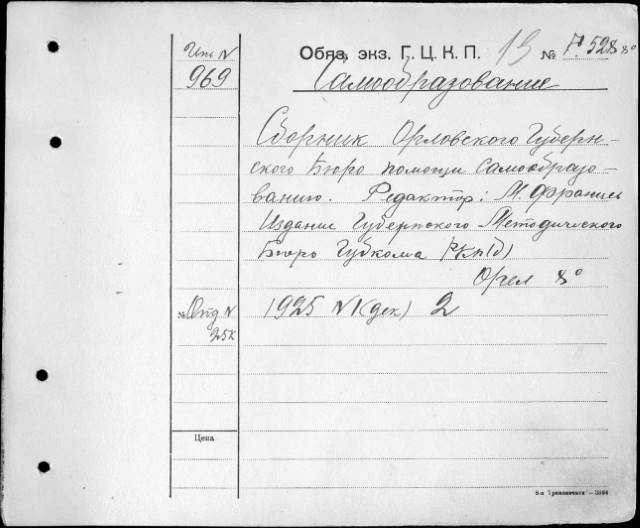 Инв N
969
Обяз. экз. Г. Ц. К. П. 13 № Р. 528 8°
Самообразование
Сборник Орловского Губерн-
ского Бюро помощи Самообразо-
ванию. Редактор: М.
Издание Губернского Методического
Бюро Губкома РКП(б)
Орел 8°
№ Отд N
25к
1925 N 1(дек) 2
Цена